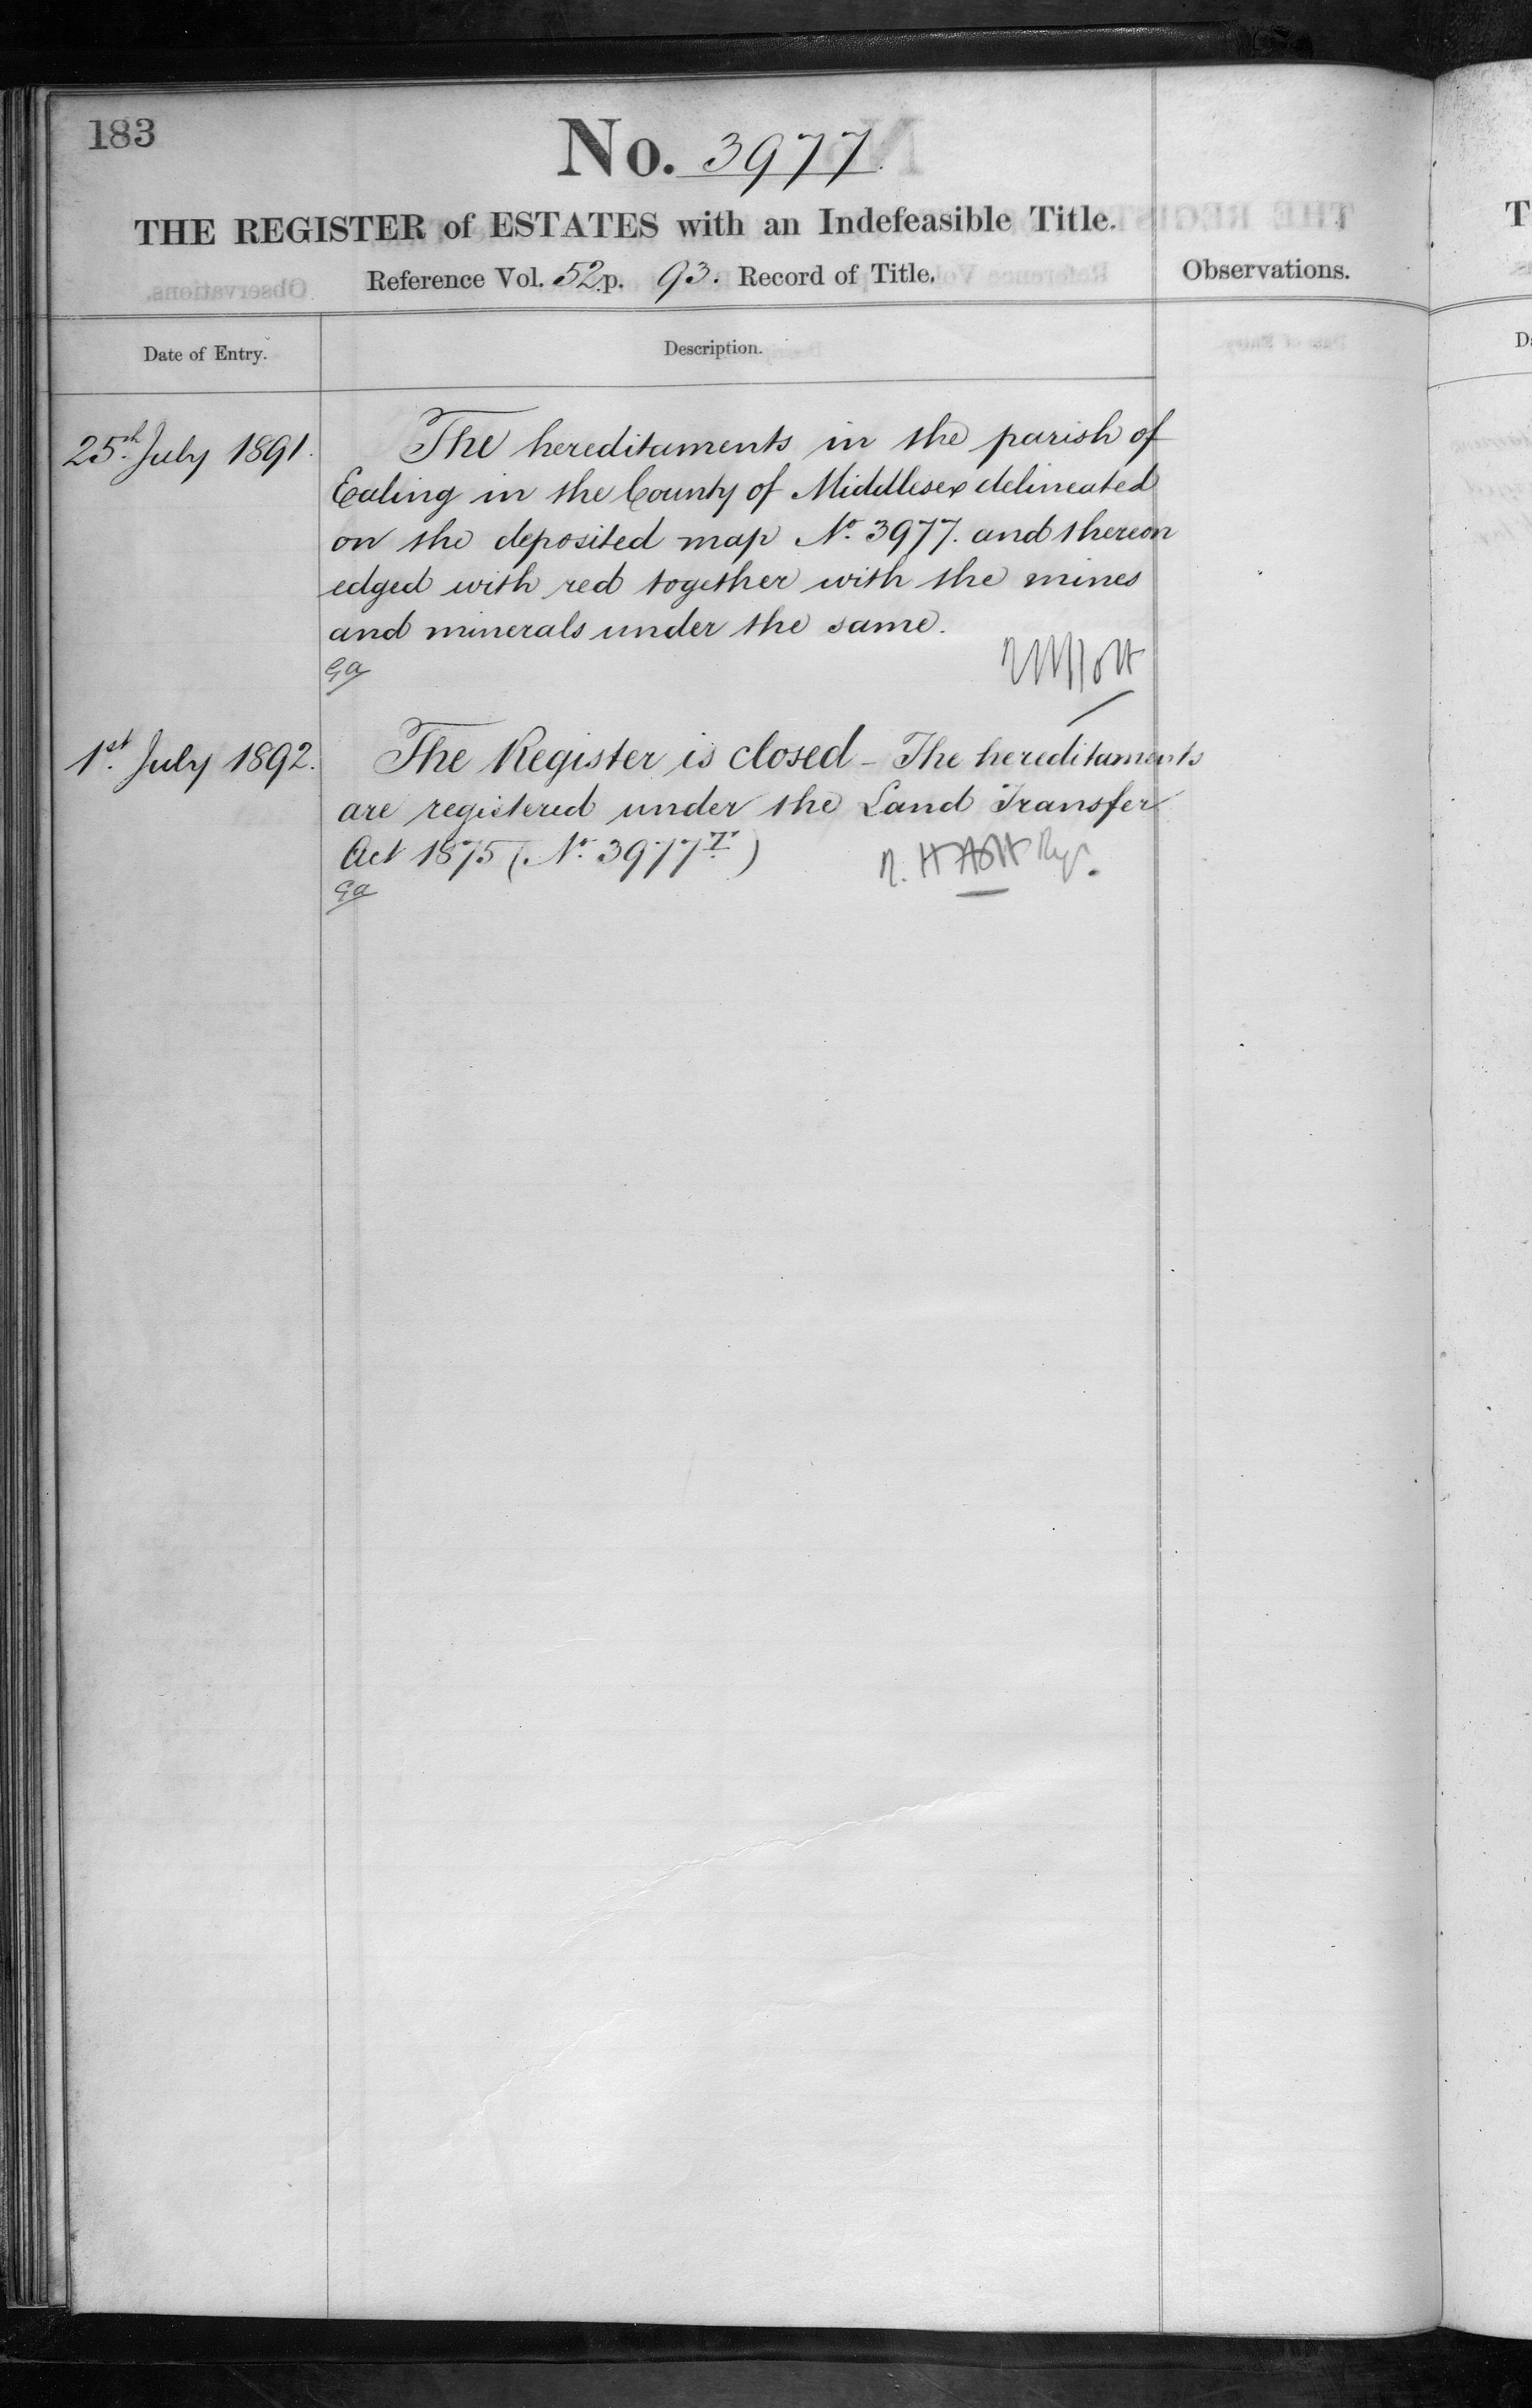 183
No. 3977.
THE REGISTER of ESTATES with an Indefeasible Title.
Reference Vol. 52 p. 93. Record of Title.
Observations.
Date of Entry.
Description.
25th July 1891.
The hereditaments in the parish of
Ealing in the County of Middlesex delineated
on the deposited map No. 3977. and thereon
edged with red together with the mines
and minerals under the same.
1st July 1892.
The Register is closed - The hereditaments
are registered under the Land Transfer
Act 1875 (No. 3977 T.)